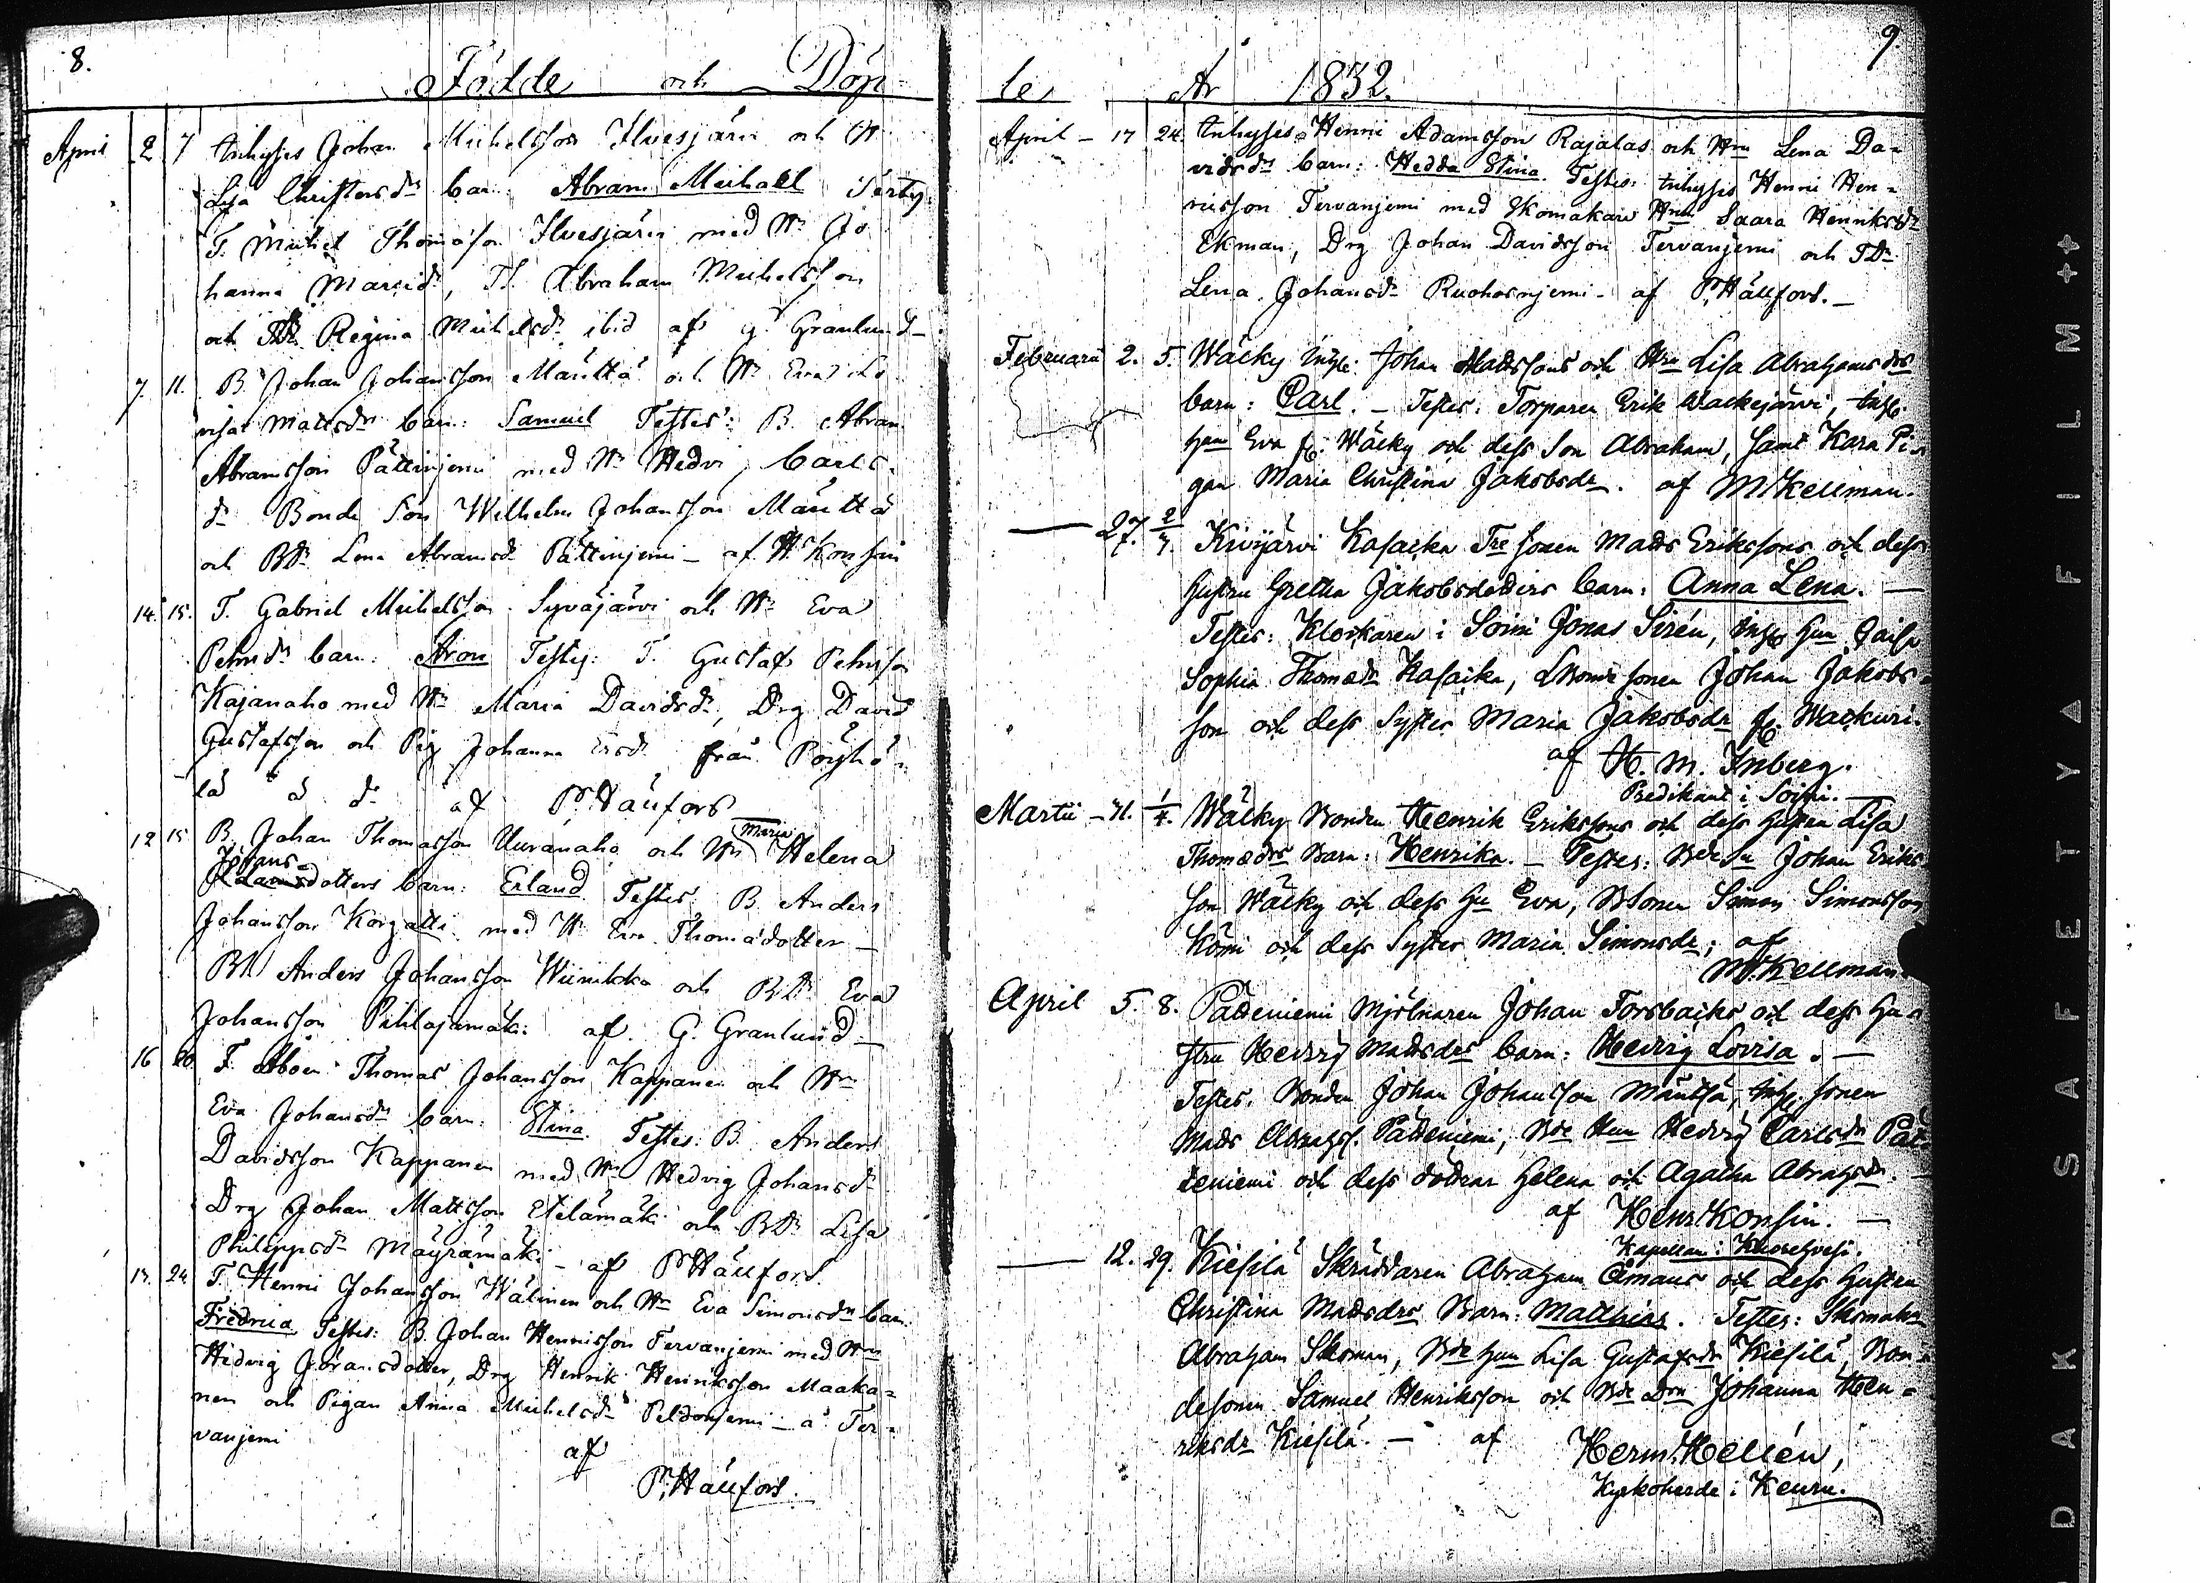 8.
Födde och Döp-
April 2 7 Inhyses Johan Michelsson Ilvesjärvi och H
Lisa Christersdr barn: Abram Michael
T. Michel Thomason Ilvesjärvi med Hu Jo
hanna, TS. Abraham Michelsson
och TDr Regina Michelsdr ibid af G. Granlund –
7. 11. B Johan Johansson Mänttä och Hu Eva Lo
visa Mattsdrs barn: Samuel Testes: B. Abram
Abramsson Pättinjemi med Hu Hedvi Carls-
dr Bonde Son Wilhelm Johansson Mänttä
och BDr Lena Abramsdr Pättinjemi – af H Konsin
14. 15. T. Gabriel Michelsson Syväjärvi och Hu Eva
Petersdr barn: Aron Testes: T. Gustaf Petersson
Kajanaho med Hu Maria Davidsdr, Drg David
Gustafsson och Pig Johanna Ersdr från Pöyhö-
lä af P. Hällfors
12 15 B. Johan Thomasson Uuranaho och Hu Maria Helena
Johans-
Adamsdotters barn: Erland Testes B. Anders
Johansson Korgatti med H Eva Thomadotter –
BS Anders Johansson Wiinikka och BDr Eva
Johansson Pihlajamäki af G. Granlund –
16 20 T. Åboen Thomas Johansson Kappanen och Hu
Eva Johansdr barn: Stina Testes: B. Anders
Davidsson Kappanen med Hu Hedvig Johansdr
Drg Johan Mattsson Etelämäki och BDr Lisa
Philippsdr Mäyrämäki – af P Hällfors.
17. 24. T. Henric Johansson Wälinen och Hu Eva Simonsdrs barn:
Fredrica Testes: B. Johan Hennisson Tervanjemi med Hu
Hedvig Göransdotter, Drg Henrik Henriksson Maaka-
nen och Pigan Anna Michelsdr Peldonjemi – å Ter-
vanjemi
af
P. Hällfors.
9.
te År 1832.
April – 17 24. Inhyses Henric Adamsson Rajalas och Hus Lena Da-
vidsdrs barn: Hedda Stina. Testes: Inhyses Henric Hen-
ricsson Tervanjemi med Skomakare Hun Saara Henriksdr
Ekman, Drg Johan Davidsson Tervanjemi och TDr
Lena Johansdr Ruohosnjemi – af P. Hällfors. –
Februarii 2. 5. Wäcky Inhs. Johan Mattssons och Hru Lisa Abrahamsdrs
barn: Carl. – Testes: Torparen Erik Wackejärvi, Inhs.
Hun Eva fr. Wäcky och dess Son Abraham, samt Kara Pi-
gan Maria Christina Jakobsdr. af M. Kellman.
— 27. 2/4. Kivijärvi Kasacka Tre sonen Matts Erikssons och dess
hustru Gretha Jakobsdotters barn: Anna Lena. –
Testes: Klockaren i Soini Jonas Sirén, Inhs Hun Caisa
Sophia Thomædr Kasacka, Bonde sonen Johan Jakobs-
son och dess Syster Maria Jakobsdr fr. Wackuri.
af H. M. Inberg.
Predikant i Soini. –
Martii – 31. 1/4. Wäcky Bonden Henrik Erikssons och dess hustru Lisa
Thomædrs Barn: Henrika. – Testes: Bden Johan Eriks-
son Wäcky och dess Hu Eva, BSonen Simon Simonsson
Kömi och dess Syster Maria Simonsdr; af
M. Kellman.
April 5. 8. Pätteniemi Mjölnaren Johan Forsbacks och dess Hu-
stru Hedvig Mattsdrs barn: Hedvig Lovisa. –
Testes. Bonden Johan Johansson Mänttä, Inhs. sonen
Matts Abrahss. Pätteniemi, Bde Hun Hedvig Carlsdr Pät-
teniemi och dess döttrar Helena och Agatha Abrahsdr. –
af Henr Konsin. –
Kapellan i Kuorehvesi.
— 12. 29. Kiesilä Skräddaren Abraham Åmans och dess hustru
Christina Mattsdrs Barn: Matthias. Testes: Skomakn
Abraham Skoman, Bde Hun Lisa Gustafsdr Kiesilä, Bon-
desonen Samuel Henriksson och Bde Drn Johanna Hen-
riksdr Kiesilä. – af Herm. Hellén,
Kyrkoherde i Keuru.
DAK SAFETY FILM